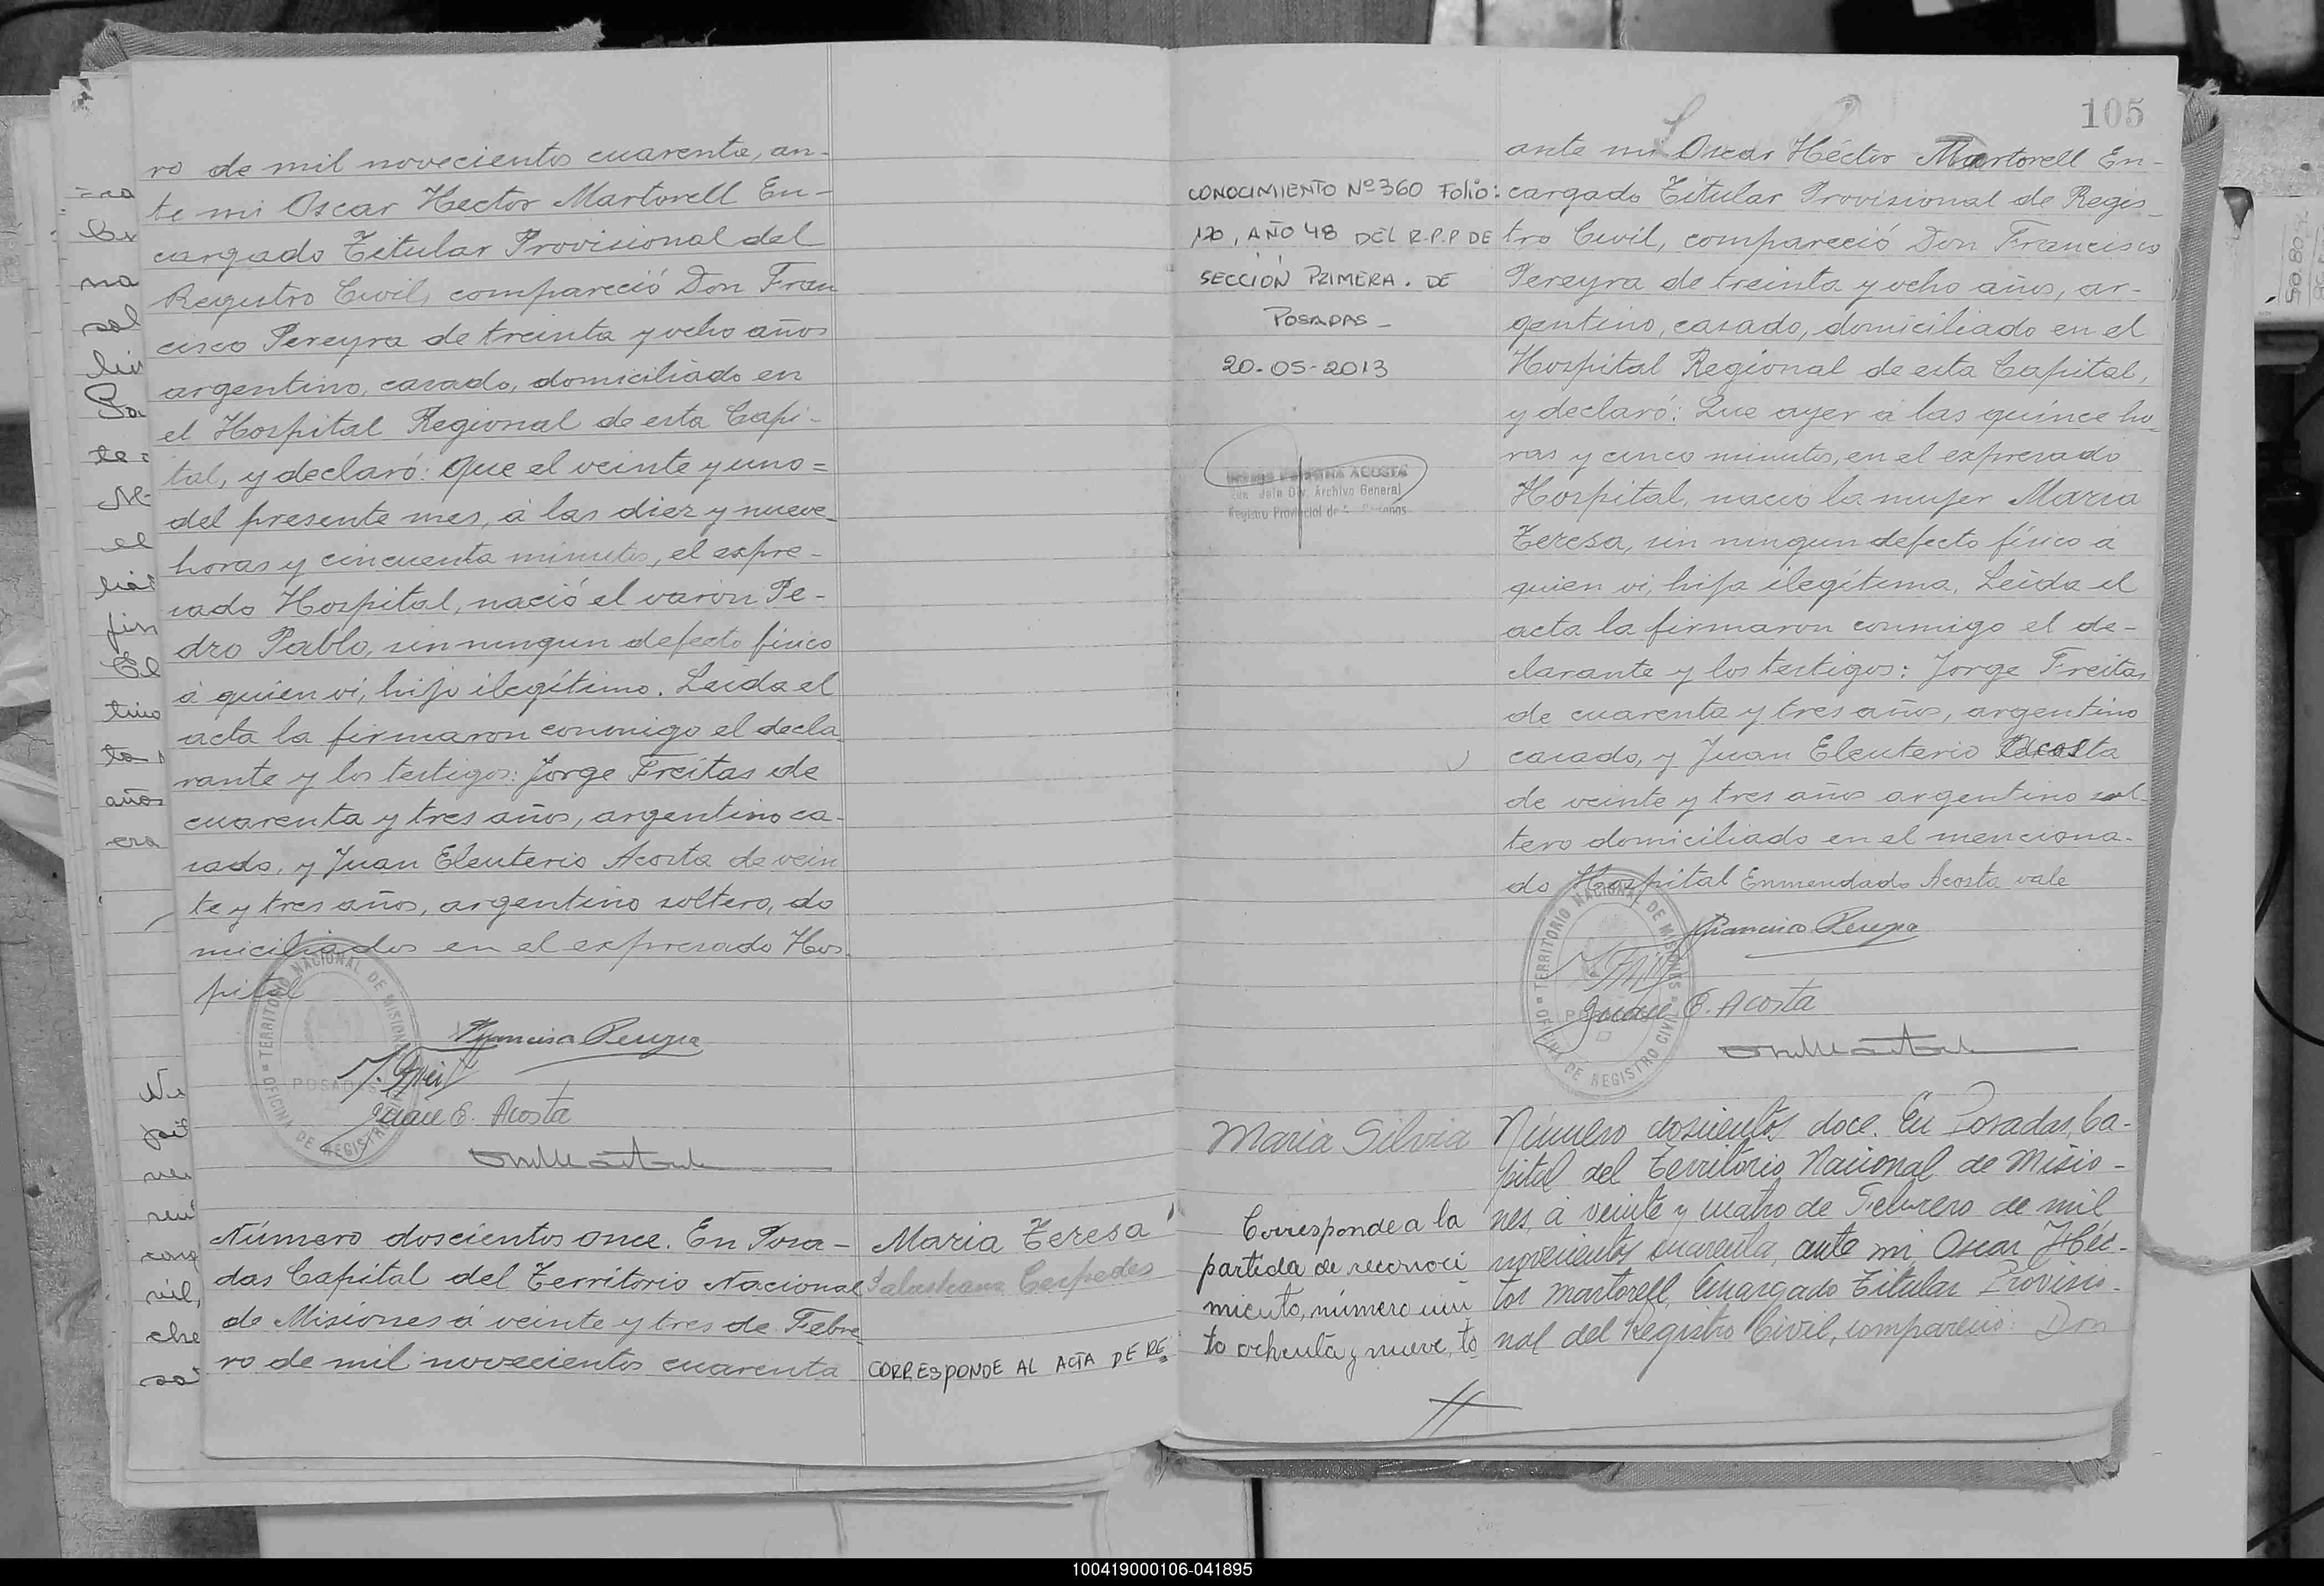 ro de mil novecientos cuarenta, an-
te mi Oscar Hector Martorell En-
cargado Titular Provisional del
Registro Civil, compareció Don Fran
cisco Pereyra de treinta y ocho años
argentino, casado, domiciliado en
el Hospital Regional de esta Capi-
tal, y declaró: Que el veinte y uno=
del presente mes, á las diez y nueve
horas y cincuenta minutos, el expre-
sado Hospital, nació el varón Pe-
dro Pablo, sin ningun defecto físico
á quien ví, hijo ilegítimo. Leída el
acta la firmaron conmigo el decla
rante y los testigos: Jorge Freitas de
cuarenta y tres años, argentino ca-
sado, y Juan Eleuterio Acosta de vein
te y tres años, argentino soltero, do
miciliados en el expresado Hos-
pital
Francisco Pereyra
Juan E. Acosta
TERRITORIO NACIONAL DE MISIONES
POSADAS
OFICINA DE REGISTRO
Número doscientos once. En Posa-
das Capital del Territorio Nacional
de Misiones á veinte y tres de Febre-
ro de mil novecientos cuarenta
Maria Teresa
Cespedes
CORRESPONDE AL ACTA DE RE
105
CONOCIMIENTO Nº 360 Folio:
120, AÑO 48 DEL R.P.P DE
SECCIÓN PRIMERA. DE
POSADAS_
20-05-2013
ACOSTA
Div. Archivo General
Registro Provincial de
ante mi Oscar Héctor Martorell En-
cargado Titular Provisional de Regis-
tro Civil, compareció Don Francisco
Pereyra de treinta y ocho años, ar-
gentino, casado, domiciliado en el
Hospital Regional de esta Capital,
y declaró: Que ayer á las quince ho-
ras y cinco minutos, en el expresado
Hospital, nació la mujer Maria
Teresa, sin ningun defecto físico á
quien ví, hija ilegítima. Leída el
acta la firmaron conmigo el de-
clarante y los testigos: Jorge Freitas
de cuarenta y tres años, argentino
casado, y Juan Eleuterio Acosta
de veinte y tres años argentino sol-
tero domiciliado en el menciona-
do Hospital Enmendado Acosta vale
Francisco Pereyra
Juan E. Acosta
TERRITORIO NACIONAL DE MISIONES
POSADAS
OFICINA DE REGISTRO CIVIL
Maria Silvia
Corresponde a la
partida de reconoci
miento, número cien
to ochenta y nueve, to
Número doscientos doce. En Posadas, Ca-
pital del Territorio Nacional de Misio-
nes, á veinte y cuatro de Febrero de mil
novecientos cuarenta, ante mi Oscar Héc-
tor Martorell, Encargado Titular Provisio-
nal del Registro Civil, compareció: Don
100419000106-041895